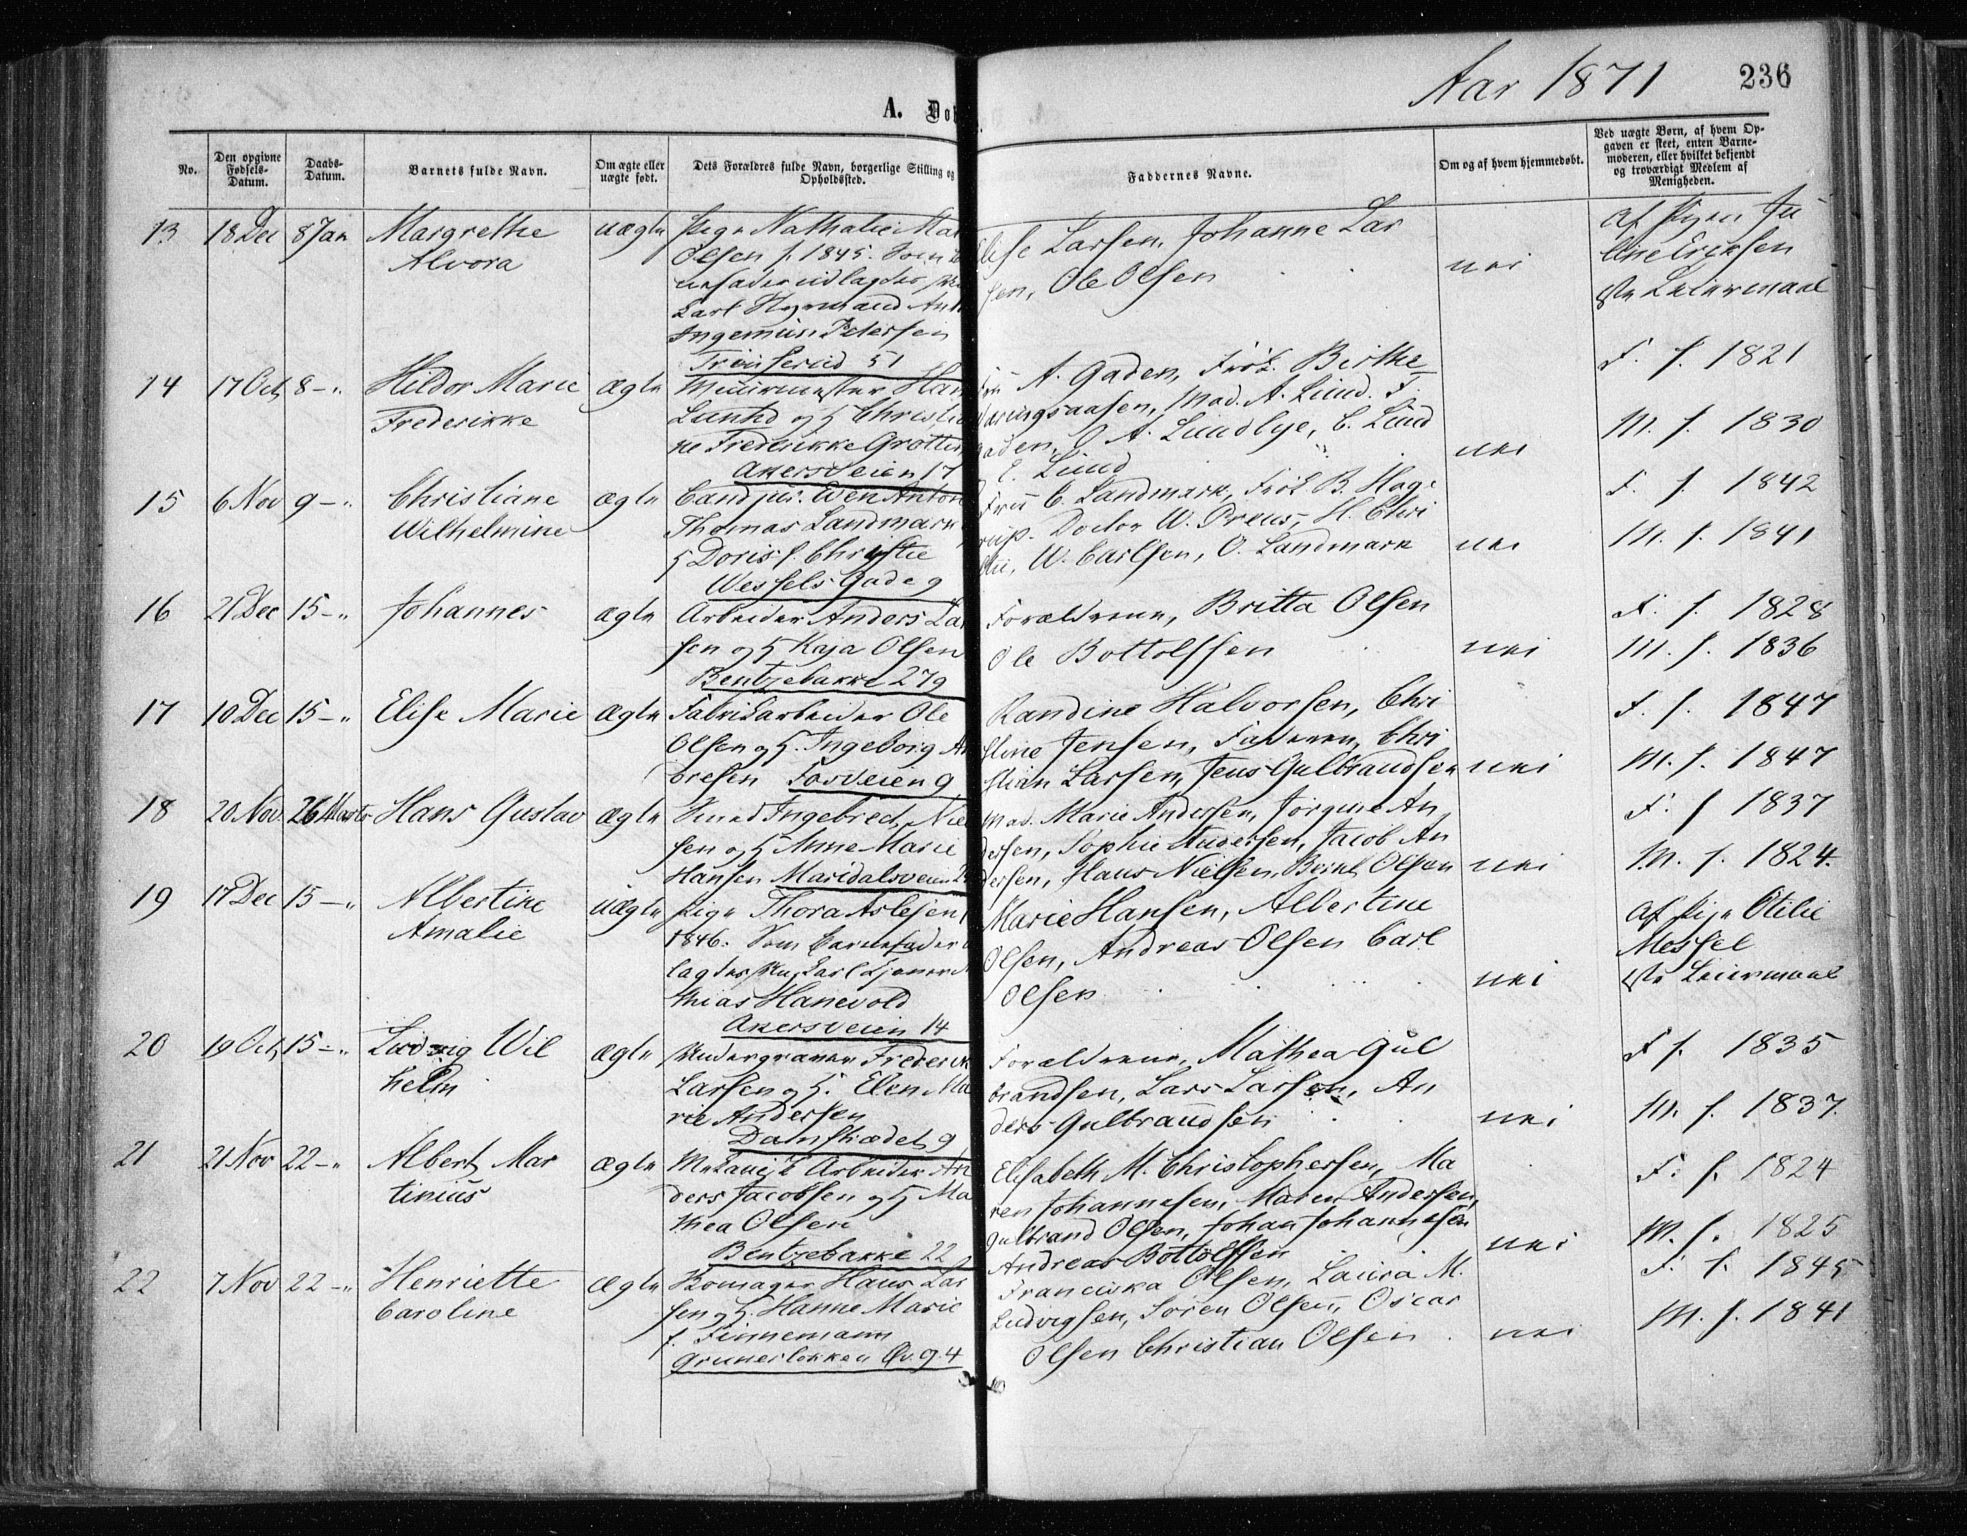 Aar 1871
236
A. Dob
No.
Den opgivne Fødsels-Datum.
Daabs-Datum.
Barnets fulde Navn.
Om ægte eller uægte født.
Dets Forældres fulde Navn, borgerlige Stilling og Opholdssted.
Faddernes Navne.
Om og af hvem hjemmedøbt.
Ved uægte Børn, af hvem Opgaven er skeet, enten Barnemoderen, eller hvilket bekjendt og troværdigt Medlem af Menigheden.
13 18 Dec 8 Jan Margrethe Alvora uægte
Pige Nathalie Mar
Olsen f. 1845. Som
Carl
Ingemus. Petersen
Trönserud 51
Elise Larsen, Johanne Lar
sen, Ole Olsen
nei
Af Pigen Ju
line Eriksen
Leiermaal
14 17 Oct 8 - " Hildor Marie Frederikke ægte
Muurmester Han
Lunhd og H Christia
ne Frederikke Grötting
Akersveien 17
Fru A. Gaden, Frök. Birthe
Haringsaasen, Mad. A. Lund. F.
Gaden, A. Lundbye, C. Lund
E. Lund
nei
F. f. 1821
M. f. 1830
15 6 Nov 9 - " Christiane Wilhelmine ægte
Cand jur. Even Anton
Thomas Landmark
H Doris f. Christie
Wessels Gade 9
Fru C. Landmark, Frök B. Hage
rup. Doctor W. Preus, H. Chri
stie, W. Carlsen, O. Landmark
nei
F. f. 1842
M. f. 1841
16 21 Dec 15 - " Johannes ægte
Arbeider Anders Lar
sen og H Kaja Olsen
Bentzebakke 279
Forældrene, Britta Olsen
Ole Bottolfsen
nei
F. f. 1828
M. f. 1836
17 10 Dec 15 - " Elise Marie ægte
Fabrikarbeider Ole
Olsen og H. Ingeborg An
dresen Fosveien 9
Randine Halvorsen, Chri
stine Jensen, Faderen, Chri
stian Larsen, Jens Gulbrandsen
nei
F. f. 1847
M. f. 1847
18 20 Nov 26 Marts Hans Gustav ægte
Svend Ingebret Niel
sen og H Anne Marie
Hansen Maridalsveien 2
Mad. Marie Andersen, Jörgine An
dersen, Sophie Andersen, Jacob An
dersen, Hans Nielsen, Bernt Olsen
nei
F. f 1837
M. f. 1824.
19 17 Dec 15 - " Albertine Amalie uægte
Pige Thora Aslesen f
1846. Som Barnefader
lagdes Ung Karl
thias Hanevold
Akersveien 14
Marie Hansen, Albertine
Olsen, Andreas Olsen Carl
Olsen
nei
Af Pige Otilie
Messel
Leiermaal
20 19 Oct 15 - " Ludvig Wilhelm ægte
Frederik
Larsen og H. Elen Ma
rie Andersen
Damstrædet 9
Forældrene, Mathea Gul
brandsen, Lars Larsen, An
ders Gulbrandsen
nei
F f. 1835
M. f. 1837.
21 21 Nov 22 - " Albert Martinius ægte
Mekanisk Arbeider An
ders Jacobsen og H Ma
thea Olsen
Bentzebakke 22
Elisabeth M. Christophersen, Ma
ren Johannesen, Maren Andersen,
Gulbrand Olsen, Johan Johannesen
Andreas Bottolfsen
nei
F. f. 1824
M. f. 1825
22 7 Nov 22 - " Henriette Caroline ægte
Bomager Hans Lar
sen og H. Hanne Marie
f. Finnemann
Grunerlökken Qv. 9. 4
Franciska Olsen, Laura M.
Ludvigsen, Sören Olsen, Oscar
Olsen Christian Olsen
nei
F. f. 1845
M. f. 1841